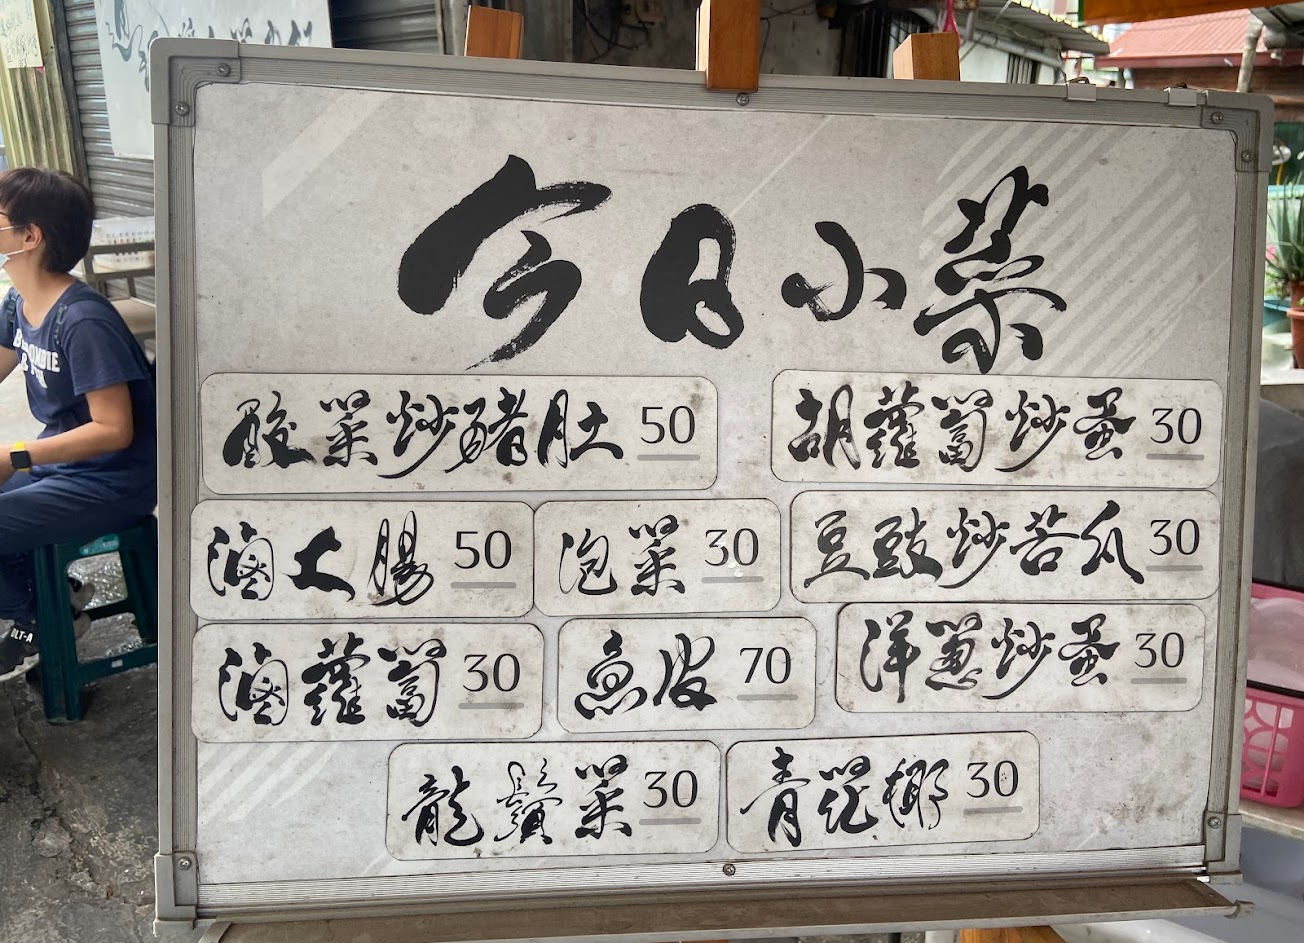 今日小菜
酸菜炒豬肚 50
胡蘿蔔炒蛋 30
滷大腸 50
泡菜 30
豆豉炒苦瓜 30
滷蘿蔔 30
魚皮 70
洋蔥炒蛋 30
龍鬚菜 30
青花椰 30